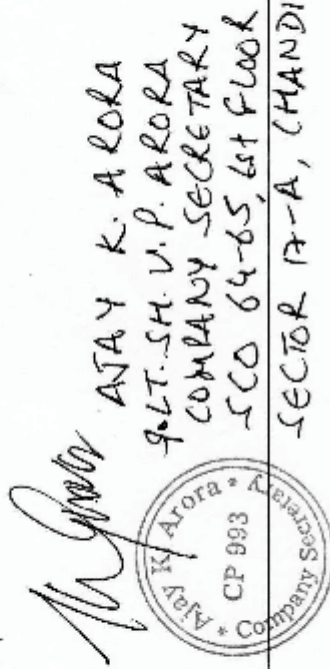 AJAY K. ARORA
S.LT. SH. V.P. ARORA
COMPANY SECRETARY
SCO 64-65, 1st FLOOR
SECTOR 17-A, CHANDI
Ajay K. Arora * Company Secretary *
CP 993